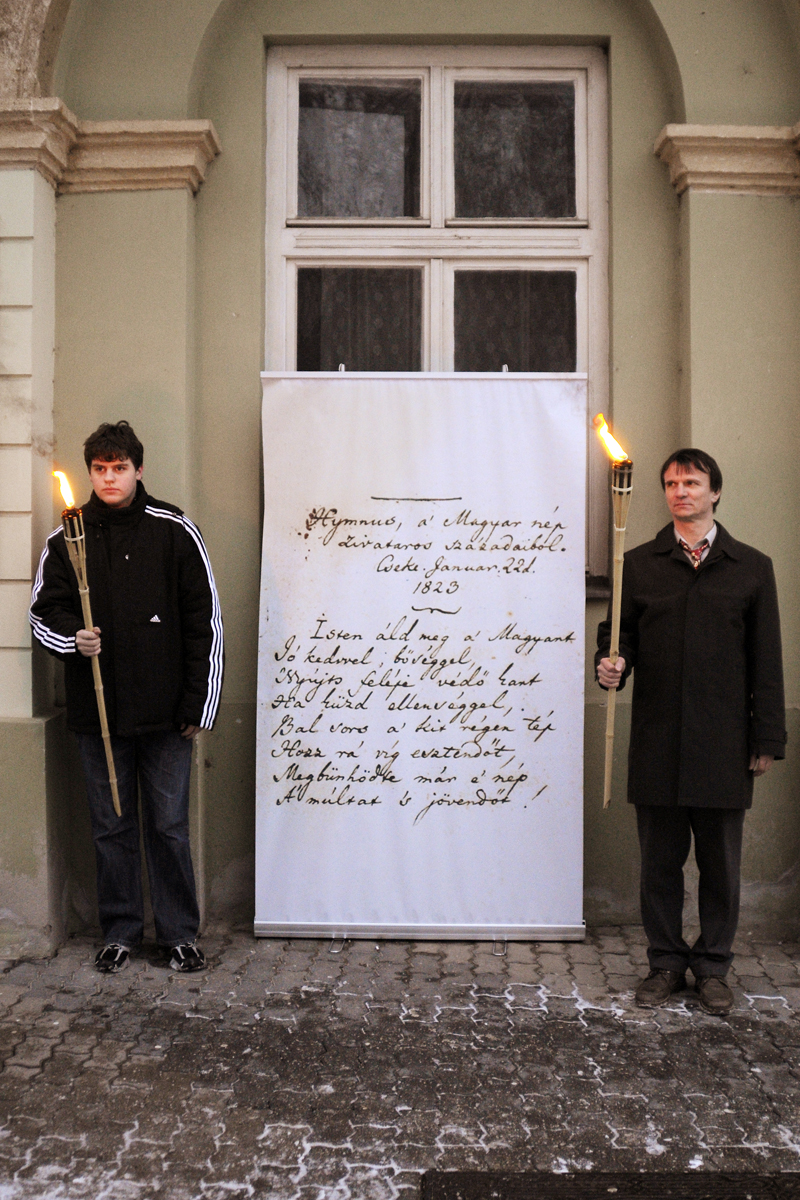 Hymnus, a' Magyar nép
Zivataros századaiból.
Cseke. Januar. 22d.
1823
Isten áld meg a' Magyart
Jó kedvvel, bőséggel,
Nyújts feléje védő kart
Ha küzd ellenséggel,
Bal sors a' kit régen tép
Hozz rá víg esztendőt,
Megbünhödte már e' nép
A' múltat 's jövendőt!
adidas